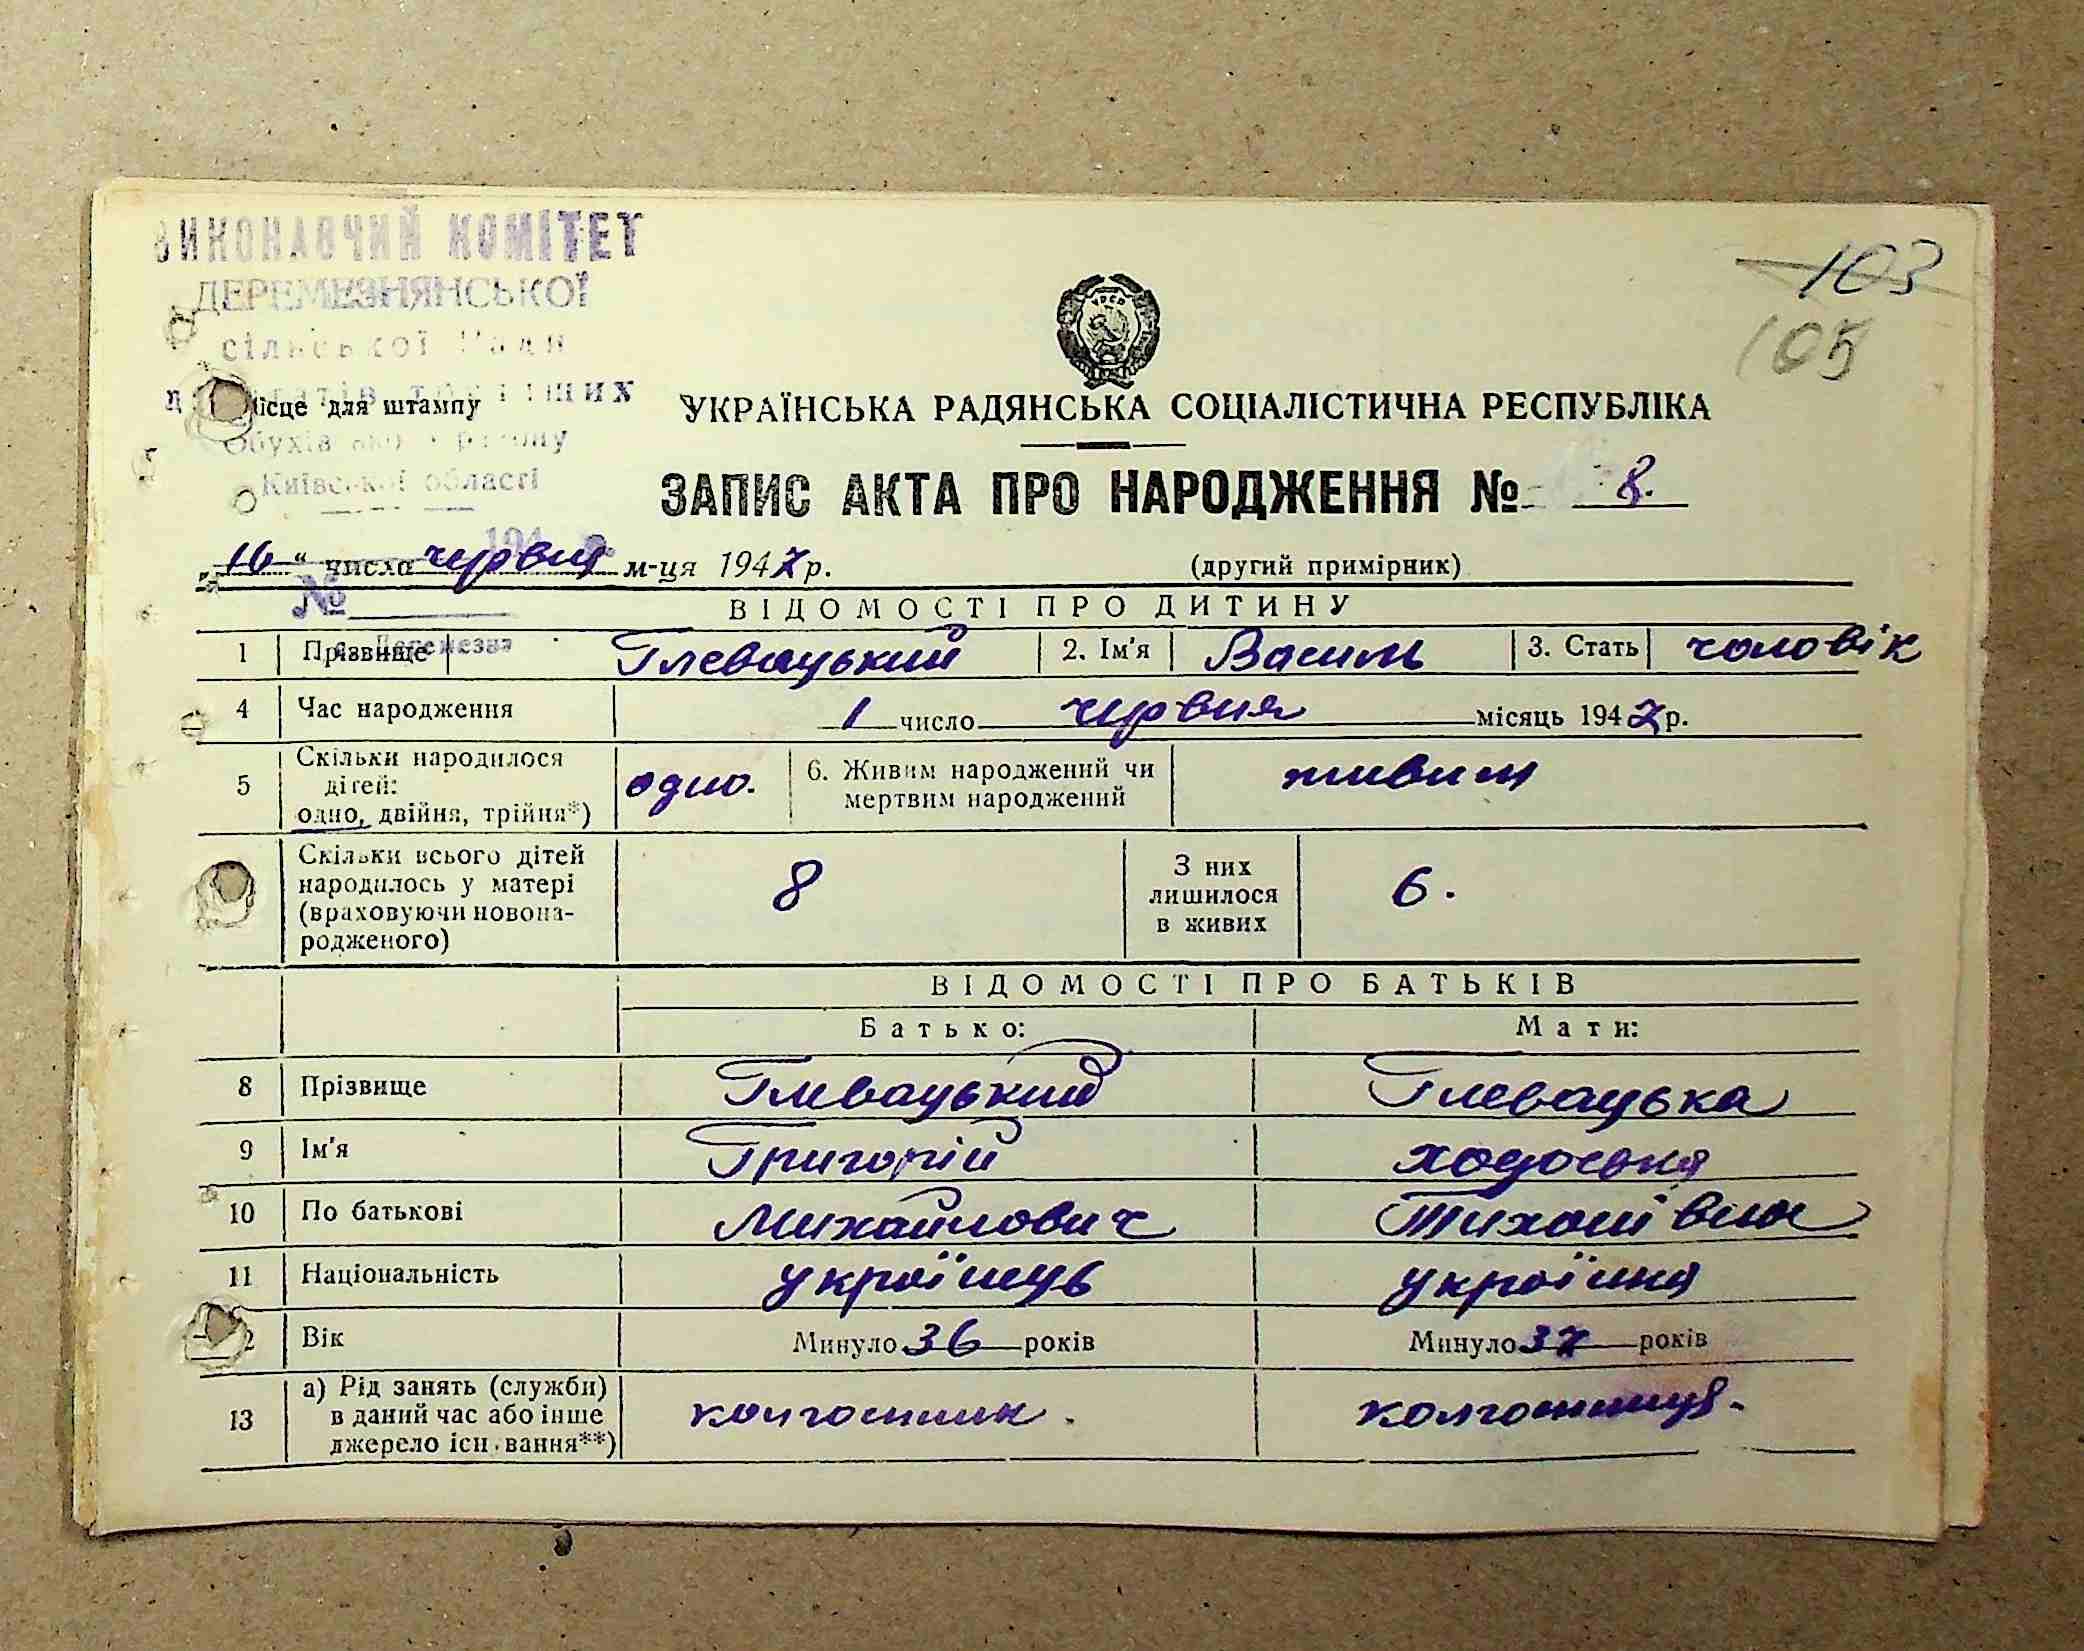 ВИКОНАВЧИЙ КОМІТЕТ
ДЕРЕМЕЗНЯНСЬКОЇ
сільської Ради
103
105
Місце для штампу
Обухівського району
Київської області
УКРАЇНСЬКА РАДЯНСЬКА СОЦІАЛІСТИЧНА РЕСПУБЛІКА
ЗАПИС АКТА ПРО НАРОДЖЕННЯ № 8.
„16“ числа червня м-ця 1947 р. (другий примірник)
№
ВІДОМОСТІ ПРО ДИТИНУ
1 Прізвище Глевацький 2. Ім'я Василь 3. Стать чоловік
4 Час народження 1 число червня місяць 1947 р.
5 Скільки народилося дітей: одно, двійня, трійня*) одно. 6. Живим народжений чи мертвим народжений живим
Скільки всього дітей народилось у матері (враховуючи новонародженого) 8 З них лишилося в живих 6.
ВІДОМОСТІ ПРО БАТЬКІВ
Батько: Мати:
8 Прізвище Глевацький Глевацька
9 Ім'я Григорій Ходоська
10 По батькові Михайлович
11 Національність українець українка
Вік Минуло 36 років Минуло 37 років
13 а) Рід занять (служби) в даний час або інше джерело існування**) колгоспник. колгоспниця.